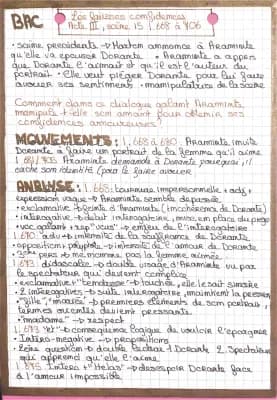 BAC
Les fausses confidences
Acte III, scène 15 l.668 à 706
• scène précédente → Marton annonce à Araminte
qu'elle va épouser Dorante. • Araminte a appris
que Dorante l'aimait et qu'il est l'auteur du
portrait • Elle veut piéger Dorante pour lui faire
avouer ses sentiments → manipulatrice de la scène
Comment dans ce dialogue galant Araminte
manipule-t-elle son amant pour obtenir ses
confidences amoureuses?
MOUVEMENTS: l.668 à 680: Araminte invite
Dorante à faire un portrait de la femme qu'il aime
l.681/705 Araminte demande à Dorante pourquoi il
cache son identité (pour le faire avouer
ANALYSE: l.668: tournure impersonnelle + adj +
expression vague → Araminte semble dépassée
• exclamative → feinte d'Araminte (incohérence de Dorante)
• interrogative → début interrogatoire, mise en place du piège
• voc galant + rep "vous" → enjeu de l'interrogatoire
l.670: adv → intensité de la souffrance de Dorante
• opposition + → intensité de l'amour de Dorante
• 3e pers → ne nomme pas la femme aimée
l.673: didascalie → double visée d'Araminte vu par
le spectateur qui devient complice
• exclamative + "tendresse" → touchée, elle le sait sincère
• 2 interrogatives → suite interrogatoire, maintient la pression
• "fille", "mariée" → premiers éléments de son portrait,
termes orientés devient pressante
• "madame" → respect
l. "et" → conséquence logique de vouloir l'épargner
• Intero-négative → propositions
• 2ème question → double lecteur 1 Dorante 2. Spectateur
qui apprend qu'elle l'aime
l.675 Intero + "Hélas" → désespoir Dorante face
à l'amour impossible